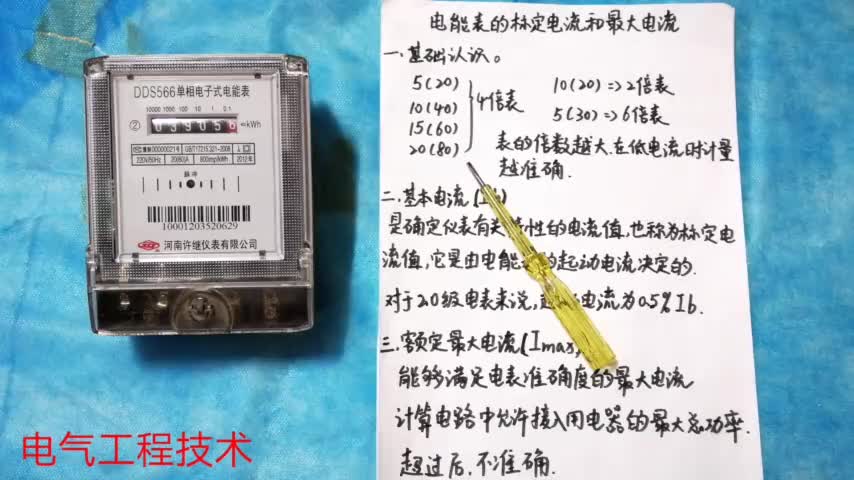 DDS566单相电子式电能表
10000 1000 100 10 1 0.1
② 039056 kWh
GB/T17215.321-2008
220V/50Hz 20(80)A 800imp/kWh 2012年
脉冲
10001203520629
河南许继仪表有限公司
电能表的标定电流和最大电流
一、基础认识。
5(20)
10(40)
15(60)
20(80)
4倍表
10(20)=>2倍表
5(30)=>6倍表
表的倍数越大,在低电流时计量
越准确.
二、基本电流(Ib)
是确定仪表有关特性的电流值,也称为标定电
流值,它是由电能的起动电流决定的.
对于2.0级电表来说,电流为0.5%Ib.
三、额定最大电流(Imax)
能够满足电表准确度的最大电流
计算电路中允许接入用电器的最大总功率.
超过后,不准确.
电气工程技术